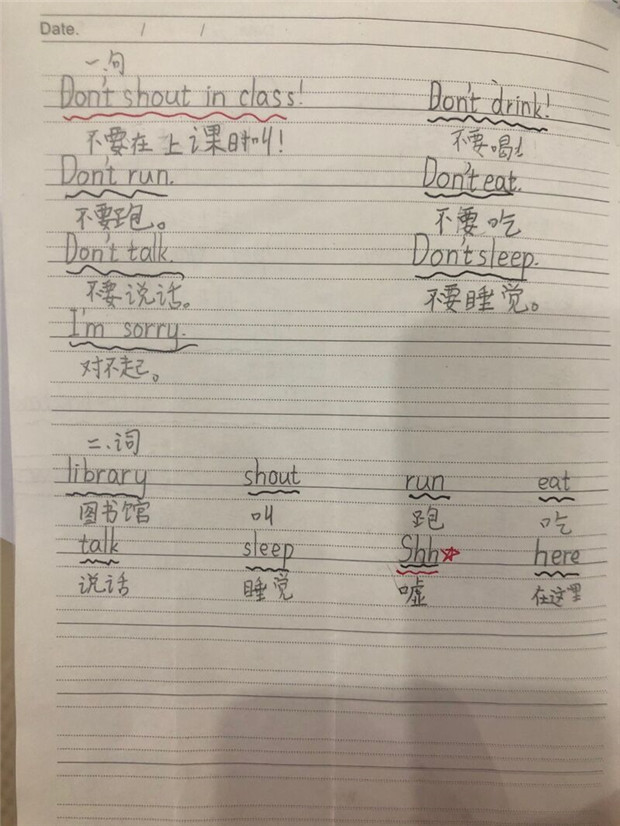 Date. / /
一.句
Don't shout in class! Don't drink!
不要在上课时叫! 不要喝!
Don't run. Don't eat.
不要跑。 不要吃
Don't talk. Don't sleep.
不要说话。 不要睡觉。
I'm sorry.
对不起。
二.词
library shout run eat
图书馆 叫 跑 吃
talk sleep Shh here
说话 睡觉 嘘 在这里